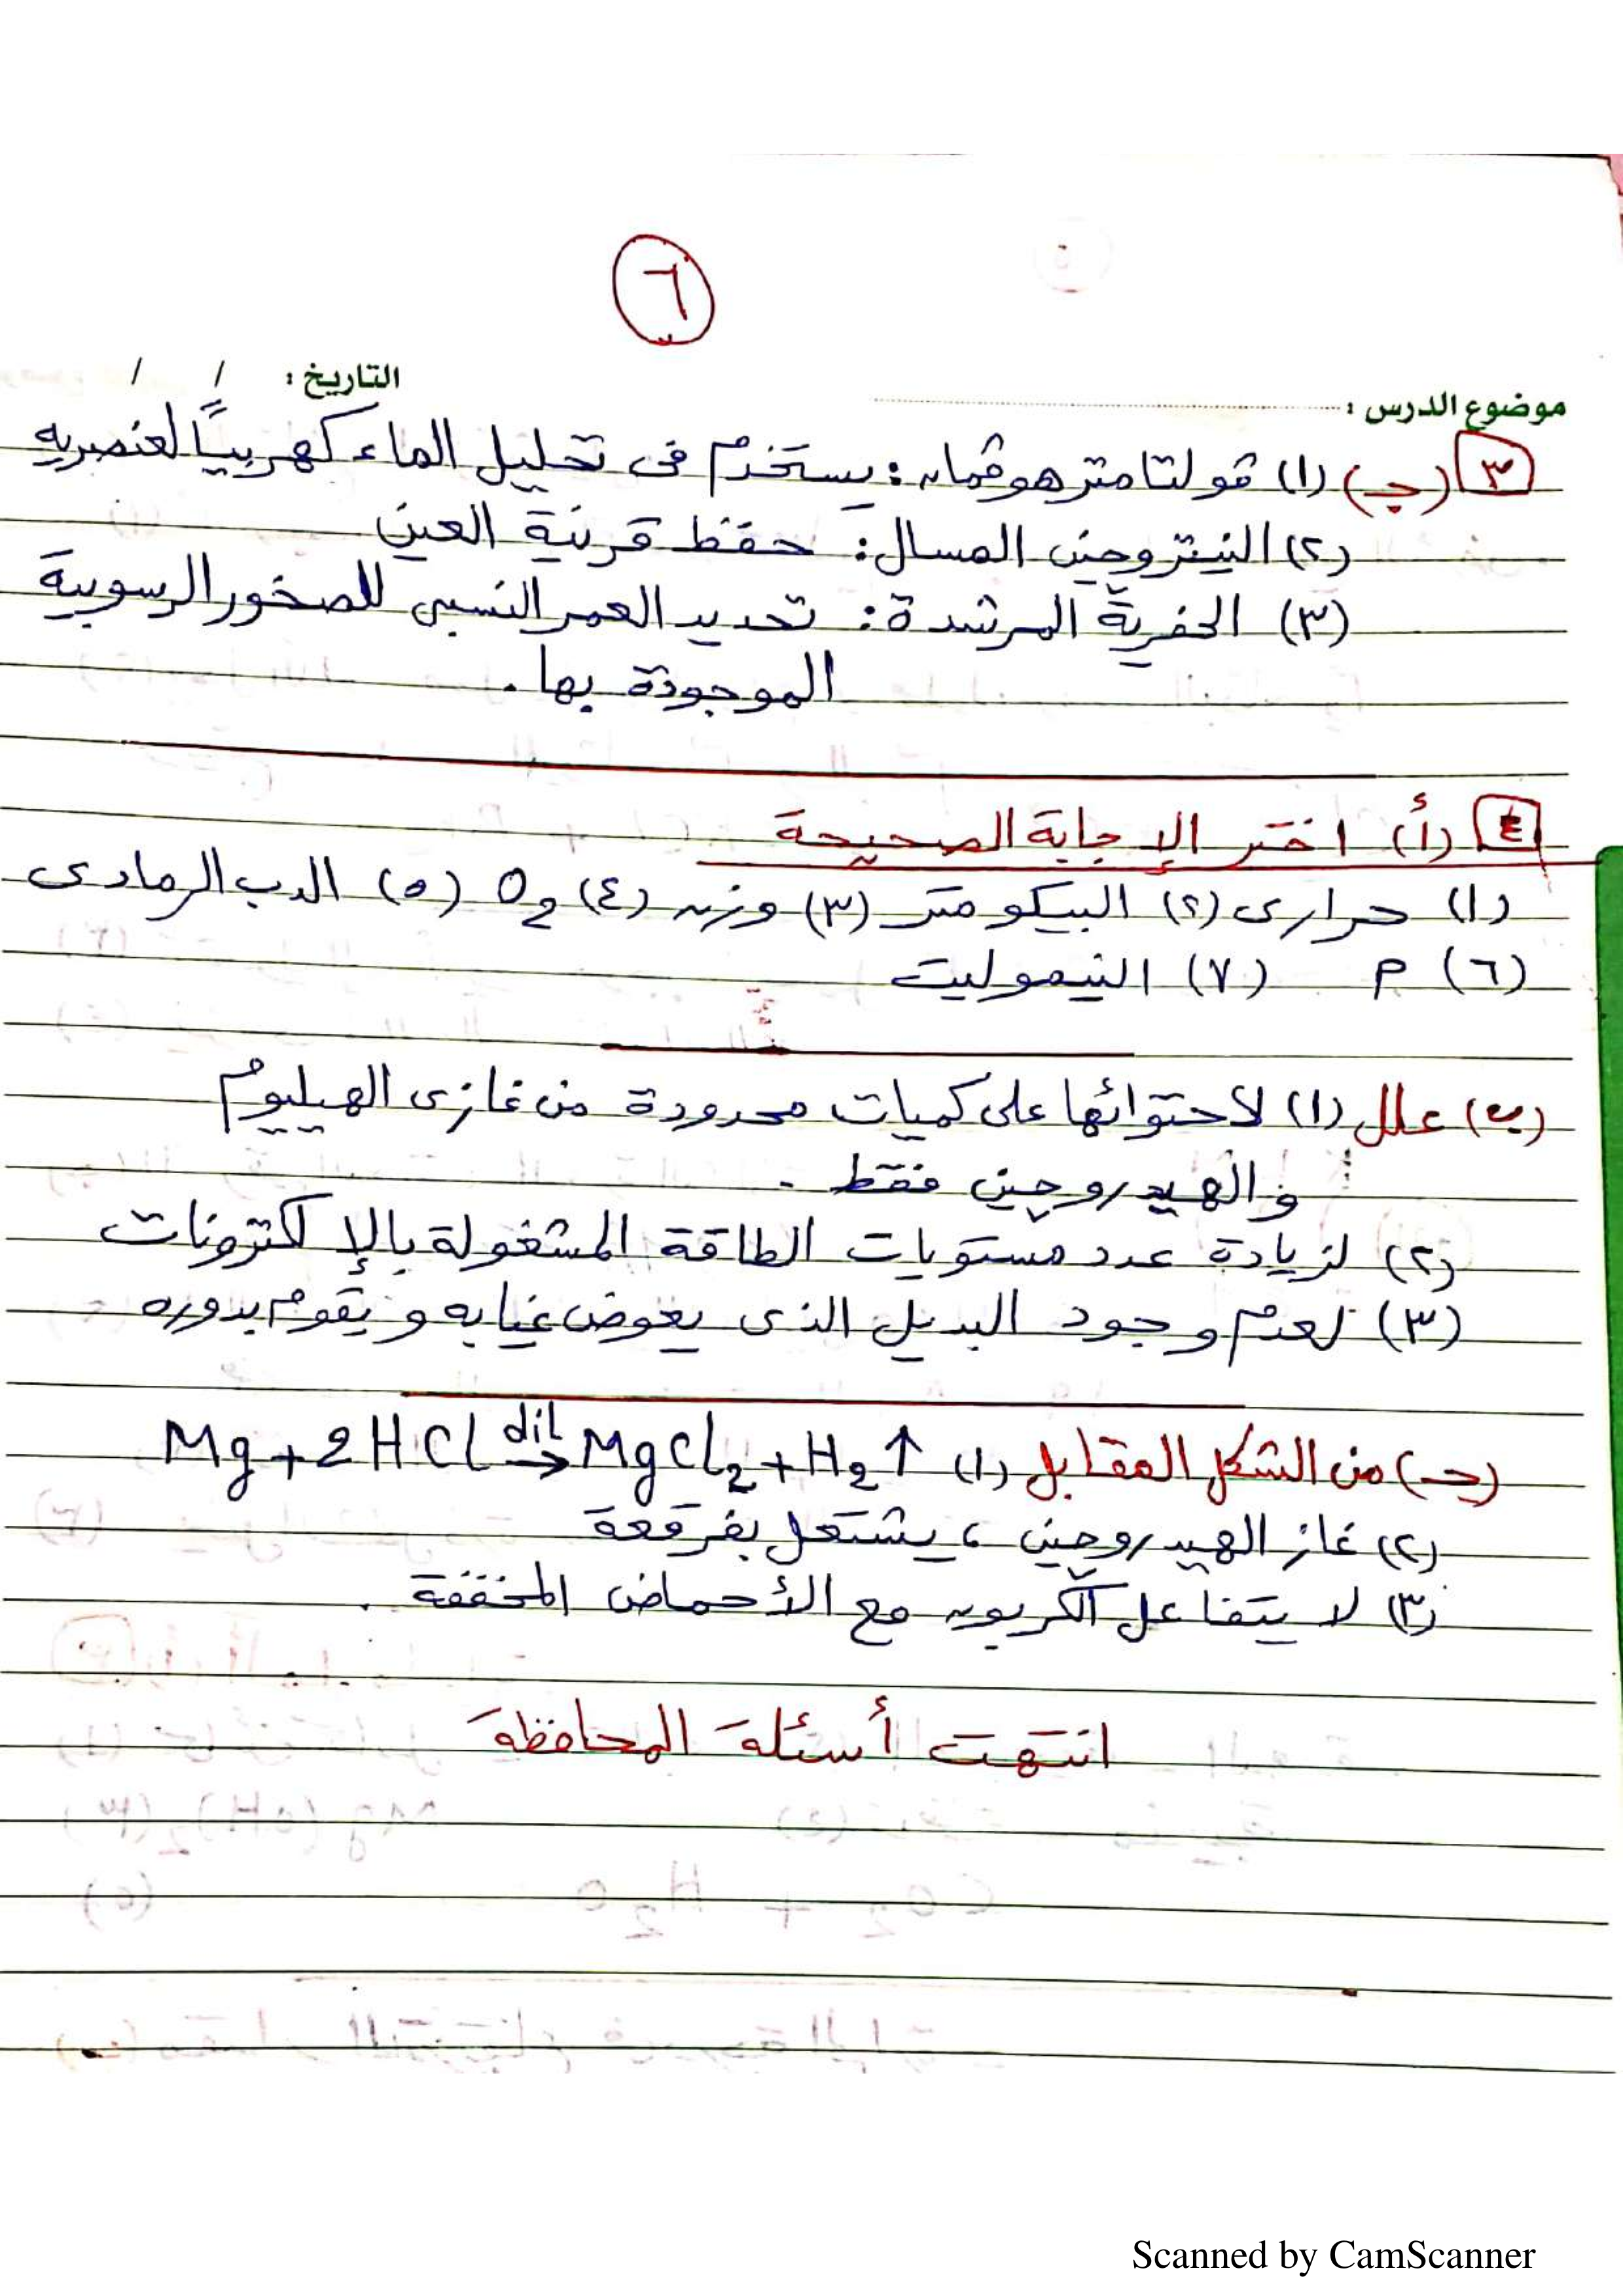 ٦
التاريخ : / /
موضوع الدرس :
٣ (جـ) (١) ڤولتامتر هوڤمان : يستخدم فى تحليل الماء كهربيًا لعنصريه
(٢) النيتروجين المسال : حفظ قرنية العين
(٣) الحفرية المرشدة : تحديد العمر النسبى للصخور الرسوبية
الموجودة بها .
٤ (أ) اختر الإجابة الصحيحة
(١) حرارى (٢) البيكومتر (٣) وزن (٤) O2 (٥) الدب الرمادى
(٦) م (٧) النيموليت
(ب) علل (١) لاحتوائها على كميات محدودة من غازى الهيليوم
والهيدروجين فقط .
(٢) لزيادة عدد مستويات الطاقة المشغولة بالإلكترونات
(٣) لعدم وجود البديل الذى يعوض غيابه ويقوم بدوره
(جـ) من الشكل المقابل (١) Mg + 2HCl dil→ MgCl2 + H2 ↑
(٢) غاز الهيدروجين ، يشتعل بفرقعة
(٣) لا يتفاعل الكربون مع الأحماض المخففة .
انتهت أسئلة المحافظة
Scanned by CamScanner